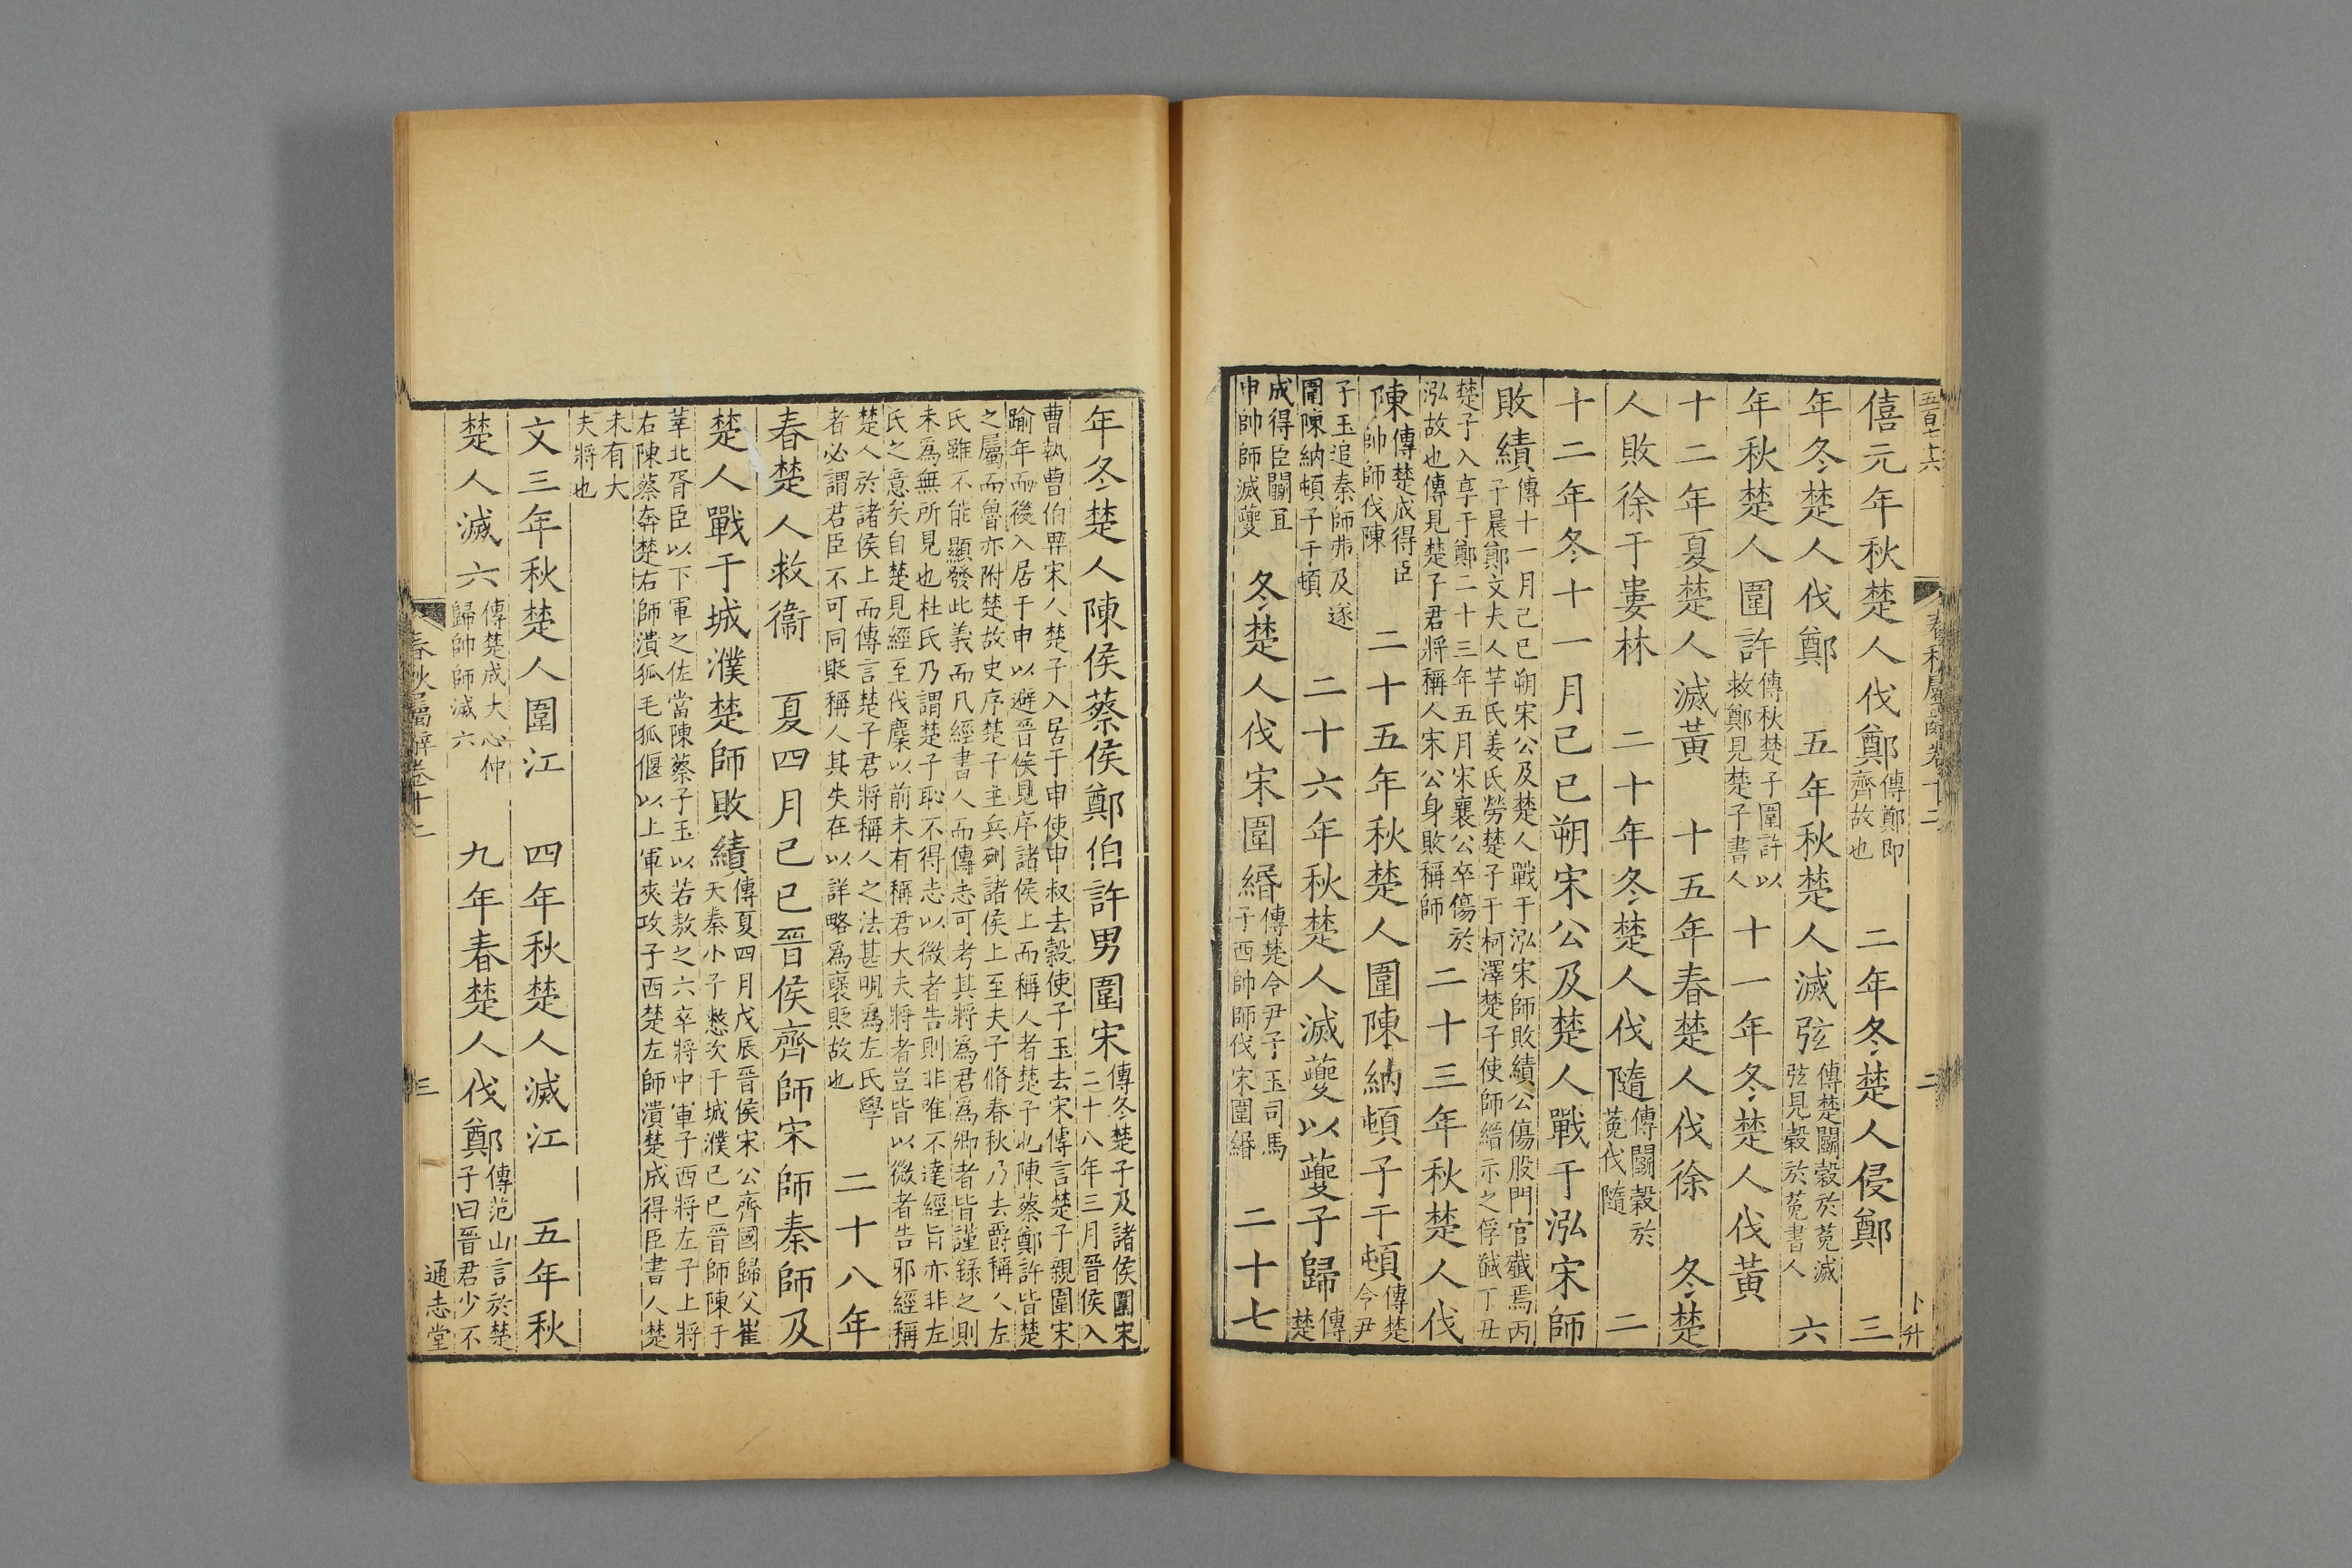 五百七十六
春秋屬辭卷十二
二
卜升
僖元年秋楚人伐鄭傳鄭即齊故也 二年冬楚人侵鄭 三
年冬楚人伐鄭 五年秋楚人滅弦傳楚鬭穀於菟滅弦見穀於菟書人 六
年秋楚人圍許傳秋楚子圍許以救鄭見楚子書人 十一年冬楚人伐黃
十二年夏楚人滅黃 十五年春楚人伐徐 冬楚
人敗徐于婁林 二十年冬楚人伐隨傳鬭穀於菟伐隨 二
十二年冬十一月己巳朔宋公及楚人戰于泓宋師
敗績傳十一月己巳朔宋公及楚人戰于泓宋師敗績公傷股門官殲焉丙子晨鄭文夫人芈氏姜氏勞楚子于柯澤楚子使師縉示之俘馘丁丑
楚子入享于鄭二十三年五月宋襄公卒傷於泓故也傳見楚子君將稱人宋公身敗稱師 二十三年秋楚人伐
陳傳楚成得臣帥師伐陳 二十五年秋楚人圍陳納頓子于頓傳楚令尹
子玉追秦師弗及遂圍陳納頓子于頓 二十六年秋楚人滅夔以夔子歸傳楚
成得臣鬭宜申帥師滅夔 冬楚人伐宋圍緡傳楚令尹子玉司馬子西帥師伐宋圍緡 二十七
年冬楚人陳侯蔡侯鄭伯許男圍宋傳冬楚子及諸侯圍宋二十八年三月晉侯入
曹執曹伯畀宋人楚子入居于申使申叔去穀使子玉去宋傳言楚子親圍宋
踰年而後入居于申以避晉侯見序諸侯上而稱人者楚子也陳蔡鄭許皆楚
之屬而魯亦附楚故史序楚子主兵列諸侯上至夫子脩春秋乃去爵稱人左
氏雖不能顯發此義而凡經書人而傳志可考其將爲君爲卿者皆謹錄之則
未爲無所見也杜氏乃謂楚子恥不得志以微者告則非唯不達經旨亦非左
氏之意矣自楚見經至伐麇以前未有稱君大夫將者豈皆以微者告邪經稱
楚人於諸侯上而傳言楚子君將稱人之法甚明爲左氏學
者必謂君臣不可同貶稱人其失在以詳略爲襃貶故也 二十八年
春楚人救衞 夏四月己巳晉侯齊師宋師秦師及
楚人戰于城濮楚師敗績傳夏四月戊辰晉侯宋公齊國歸父崔夭秦小子憖次于城濮己巳晉師陳于
莘北胥臣以下軍之佐當陳蔡子玉以若敖之六卒將中軍子西將左子上將
右陳蔡奔楚右師潰狐毛狐偃以上軍夾攻子西楚左師潰楚成得臣書人楚
未有大
夫將也
文三年秋楚人圍江 四年秋楚人滅江 五年秋
楚人滅六傳楚成大心仲歸帥師滅六 九年春楚人伐鄭傳范山言於楚子曰晉君少不
春秋屬辭卷十二
三
通志堂